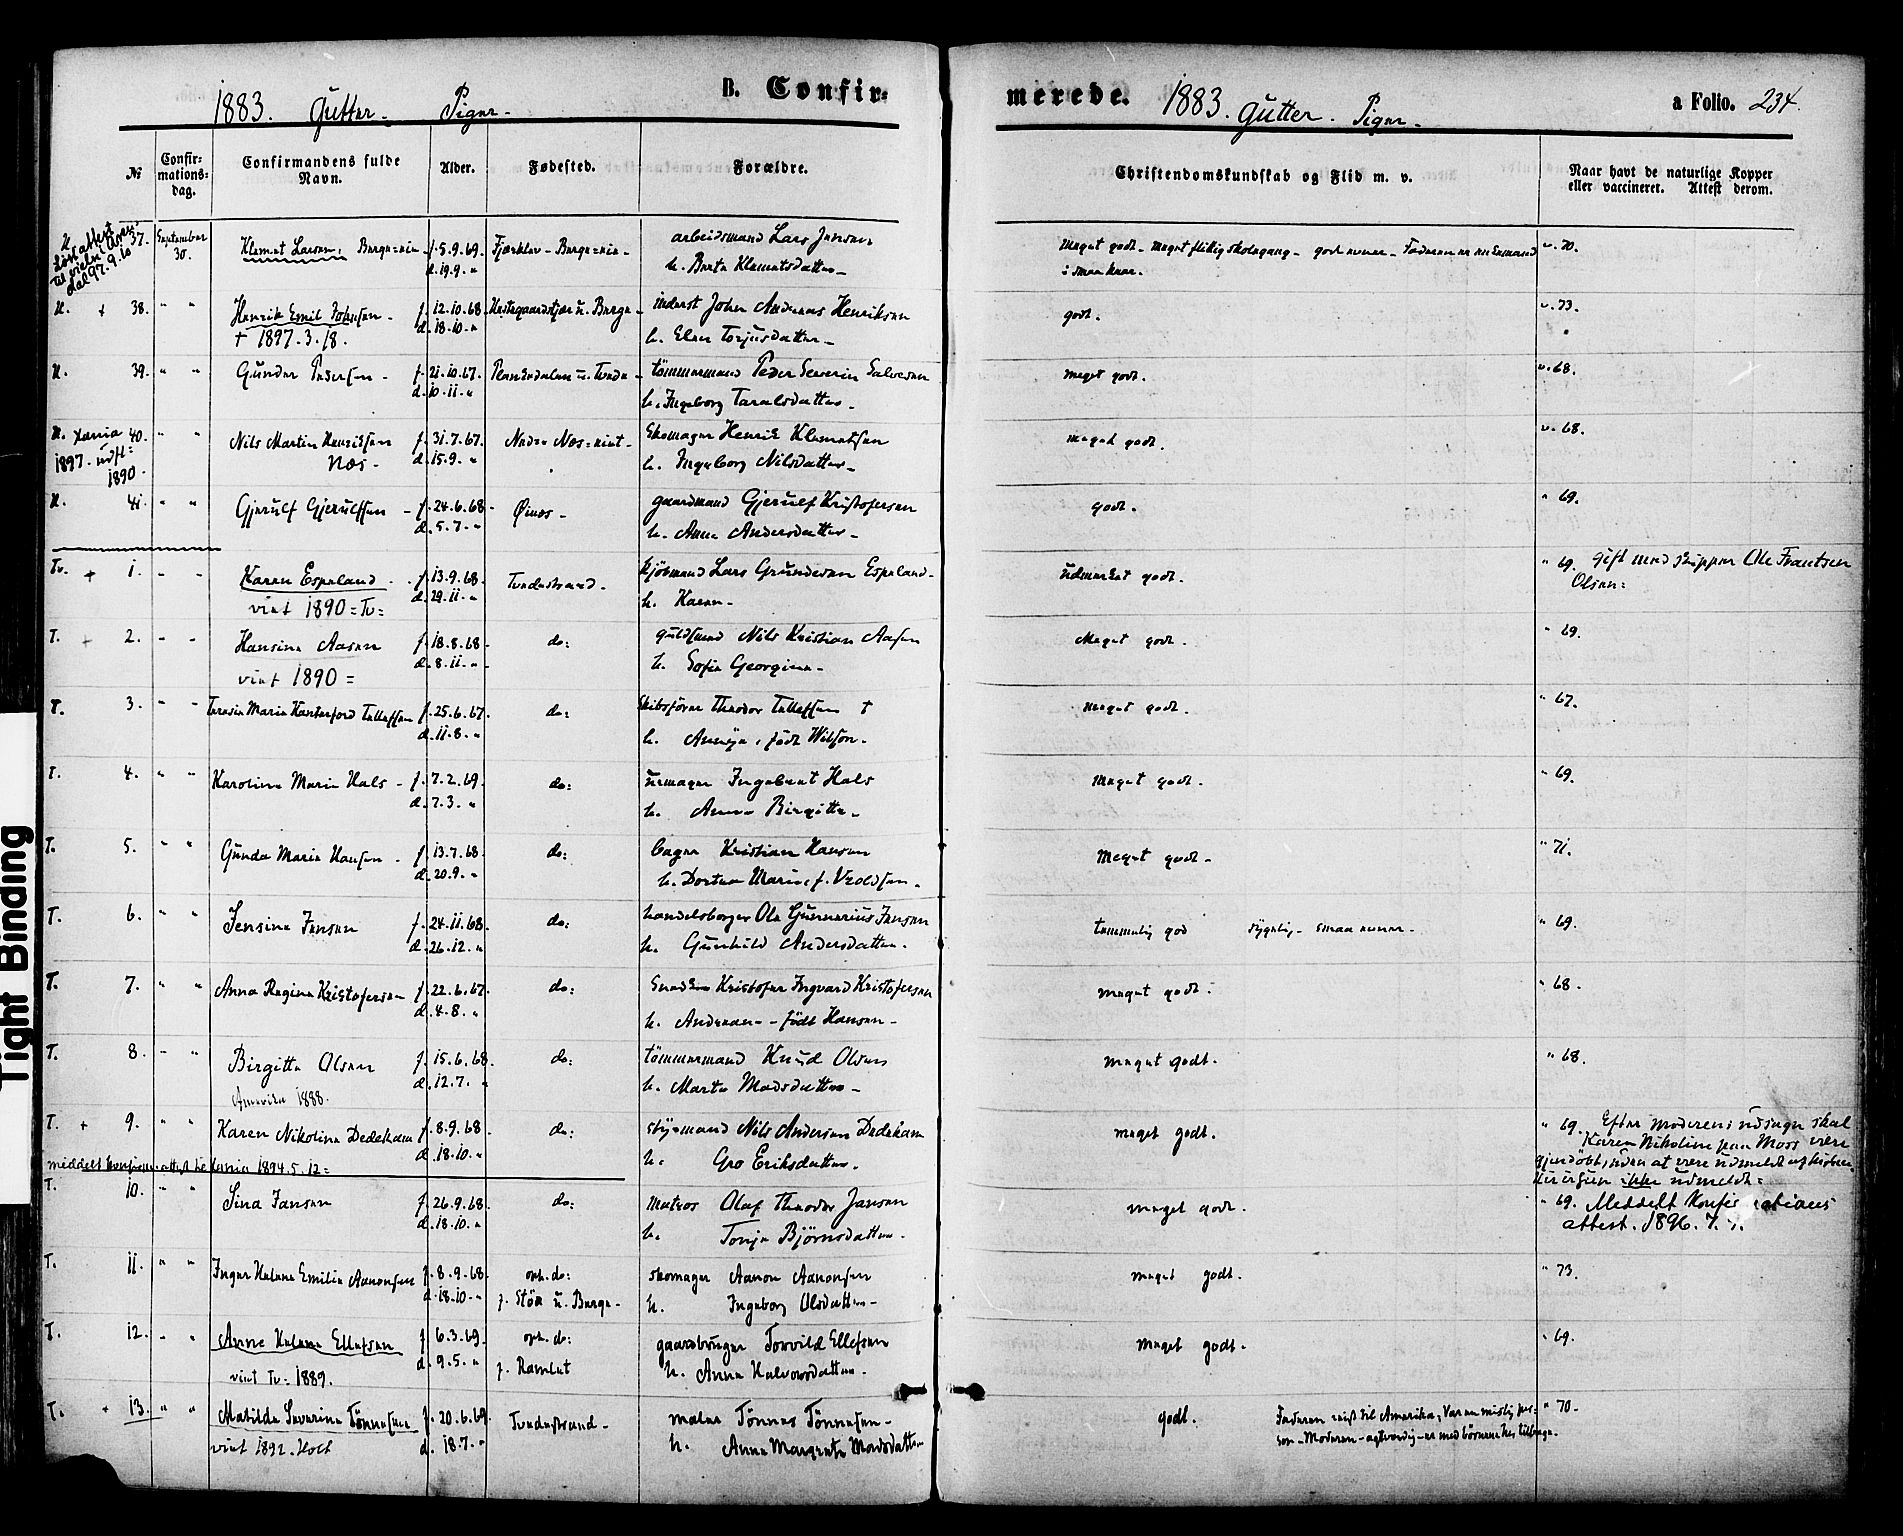 B. Confir-
merede.
1883. Gutter - Piger -
1883. Gutter - Piger -
a Folio. 234.
№
Confir-
mations-
dag.
Confirmandens fulde
Navn.
Alder.
Fødested.
Forældre.
Christendomskundskab og Flid m. v.
Naar havt de naturlige Kopper
eller vaccineret. Attest derom.
37. September 30. Klemet Larsen, f. 5.9.69. arbeidsmand Lars Jensen meget godt - meget flittig skolegang - v. 70.
d. 19.9. " h. Berte Klemetsdatter - i smaa kaar.
H. + 38. " " Henrik Emil Johnsen - f. 12.10.68. inderst John Andreas Henriksen godt. v. 73.
+ 1897.3.18. d. 18.10. " h. Elen Torjusdatter -
H. 39. " " Gunder Pedersen - f. 21.10.67. tömmermand Peder Severin Salvesen meget godt. v. 68.
d. 10.11. " h. Ingeborg Taralsdatter -
H. 40. " " Nils Martin Henriksen f. 31.7.67. Nedre Næs = Skomager Henrik Klemetsen meget godt. v. 68.
1897. udfl: 1890. Næs - d. 15.9. " h. Ingeborg Nilsdatter -
H. 41. " " Gjerulf Gjerulfsen - f. 24.6.68. Øinæs - gaardmand Gjerulf Kristofersen godt. " 69.
d. 5.7. " h. Anne Andersdatter -
Tv. + 1. - - Karen Espeland - f. 13.9.68. Tvedestrand - kjöbmand Lars Gundersen Espeland - udmerket godt. " 69. gift med skipper Ole Frantsen
viet 1890 = Tv = d. 29.11. " h. Karen - Olsen =
T. + 2. - - Hansine Aasen f. 18.8.68 do: guldsmed Nils Kristian Aasen Meget godt. " 69.
viet 1890 = d. 8.11. " h. Sofie Georgine -
T. 3. - - Teresie Marie Tellefsen f. 25.6.67. do: Skibsförer Theodor Tellefsen † meget godt. " 67.
d. 11.8. " h. födt Wilson -
T. 4. " " Karoline Marie Hals - f. 7.2.69. do: urmager Ingebret Hals meget godt. " 69.
d. 7.3. " h. Anne Birgitte -
T. 5. " " Gunda Marie Hansen - f. 13.7.68. do: bager Kristian Hansen Meget godt - " 71.
d. 20.9. " h. Dortea Marie, f.
T. 6. " " Jensine Jensen f. 24.11.68. do: handelsborger Ole Gunnerius Jensen temmelig god sygelig - smaa evner - " 69.
d. 26.12. " h. Gunhild Andersdatter -
T. 7. " " Anna Regine Kristofersen f. 22.6.67. do: Snedker Kristofer Ingvard Kristofersen meget godt. " 68.
d. 4.8. " h. Andrea - födt Hansen -
T. 8. - " Birgitte Olsen f. 15.6.68. do: tömmermand Knud Olsen meget godt. " 68.
Amerika 1888. d. 12.7. " h. Marte Madsdatter -
T. + 9. " " Karen Nikoline Dedekam f. 8.9.68. do: styrmand Nils Andersen Dedekam meget godt. " 69. Efter moderens udsagn skal
d. 18.10. " h. Gro Eriksdatter. Karen Nikoline paa Moss være
1894.5.12 = gjendöbt, uden at være udmeldt af kirken,
ikke udmeldt =
T. 10. Sina Jansen f. 26.9.68. do: matros Olaf Theodor Jansen meget godt. " 69. Meddelt Konfirmations
d. 18.10. " h. Tonje Björnsdatter - attest. 1896. 7.
T. 11. " " Inger Helene Emilie Aanonsen f. 8.9.68. oph. do: skomager Aanon Aanonsen meget godt. " 73.
d. 18.10. " f. Stöa u. Berge - h. Ingeborg Olsdatter -
T. 12. - " Anne Helene Ellefsen f. 6.3.69. oph. do: gaardbruger Torvild Ellefsen meget godt. " 69.
viet Tv = 1889. d. 9.5. " f. Ramlet h. Anne Halvorsdatter -
T. + 13. " " Matilde Severine Tönnesen f. 20.6.69. Tvedestrand - maler Tönnes Tönnesen - godt. Faderen reist til Amerika, " 70 -
viet 1892. Holt d. 18.7. " h. Anne Margrete Mordsdatter - Moderen - agtverdig - er med börnene her tilbage -
Tight Binding